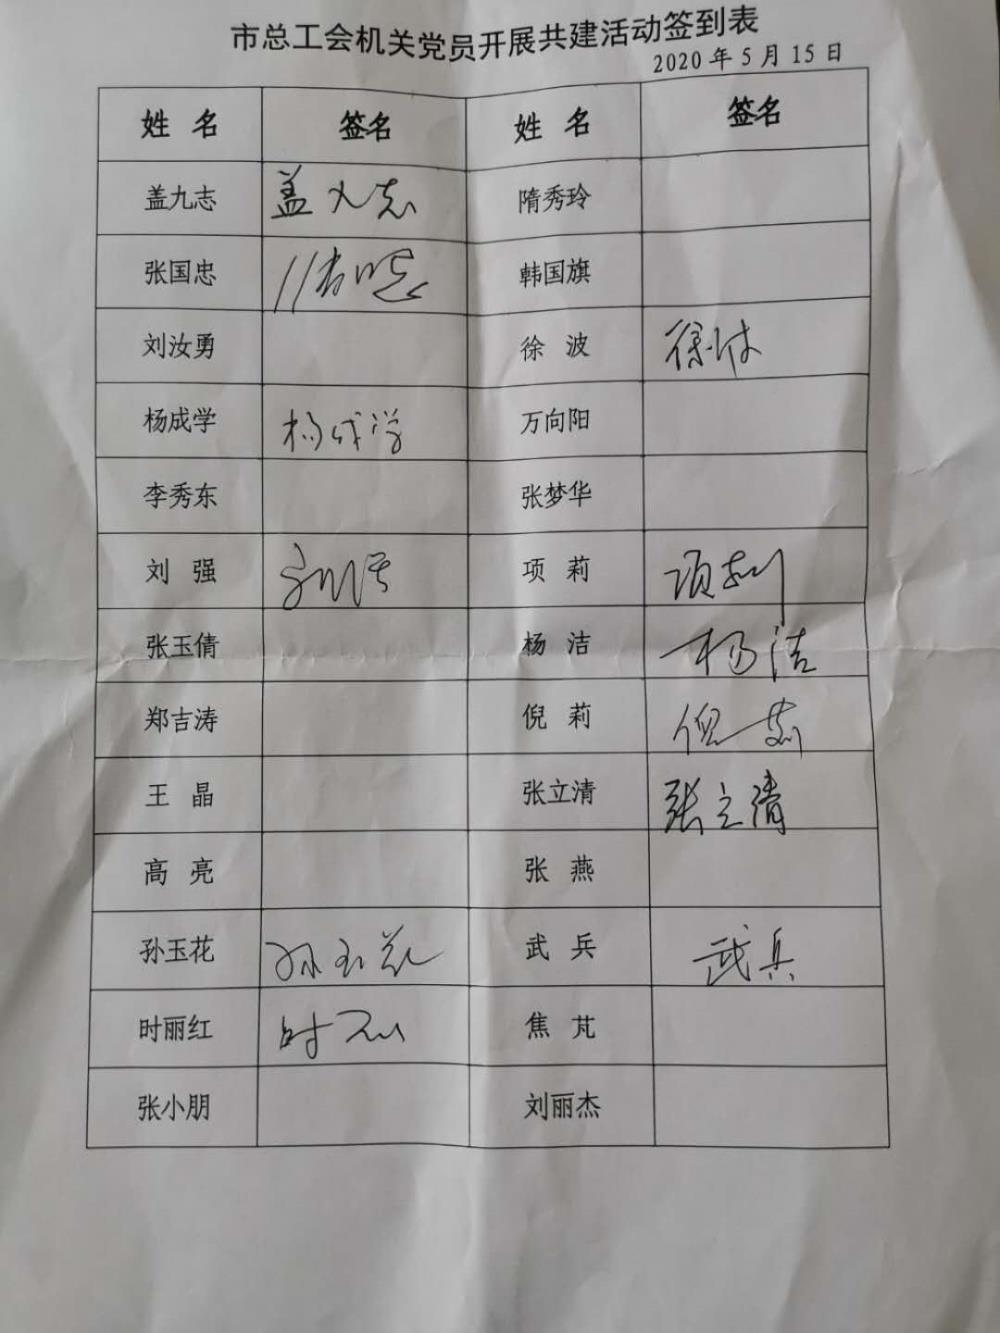 市总工会机关党员开展共建活动签到表
2020 年 5 月 15 日
姓 名 签名 姓 名 签名
盖九志 盖九志 隋秀玲
张国忠 张国忠 韩国旗
刘汝勇 徐 波 徐波
杨成学 杨成学 万向阳
李秀东 张梦华
刘 强 刘强 项 莉 项莉
张玉倩 杨 洁 杨洁
郑吉涛 倪 莉 倪莉
王 晶 张立清 张立清
高 亮 张 燕
孙玉花 孙玉花 武 兵 武兵
时丽红 时丽红 焦 芃
张小朋 刘丽杰